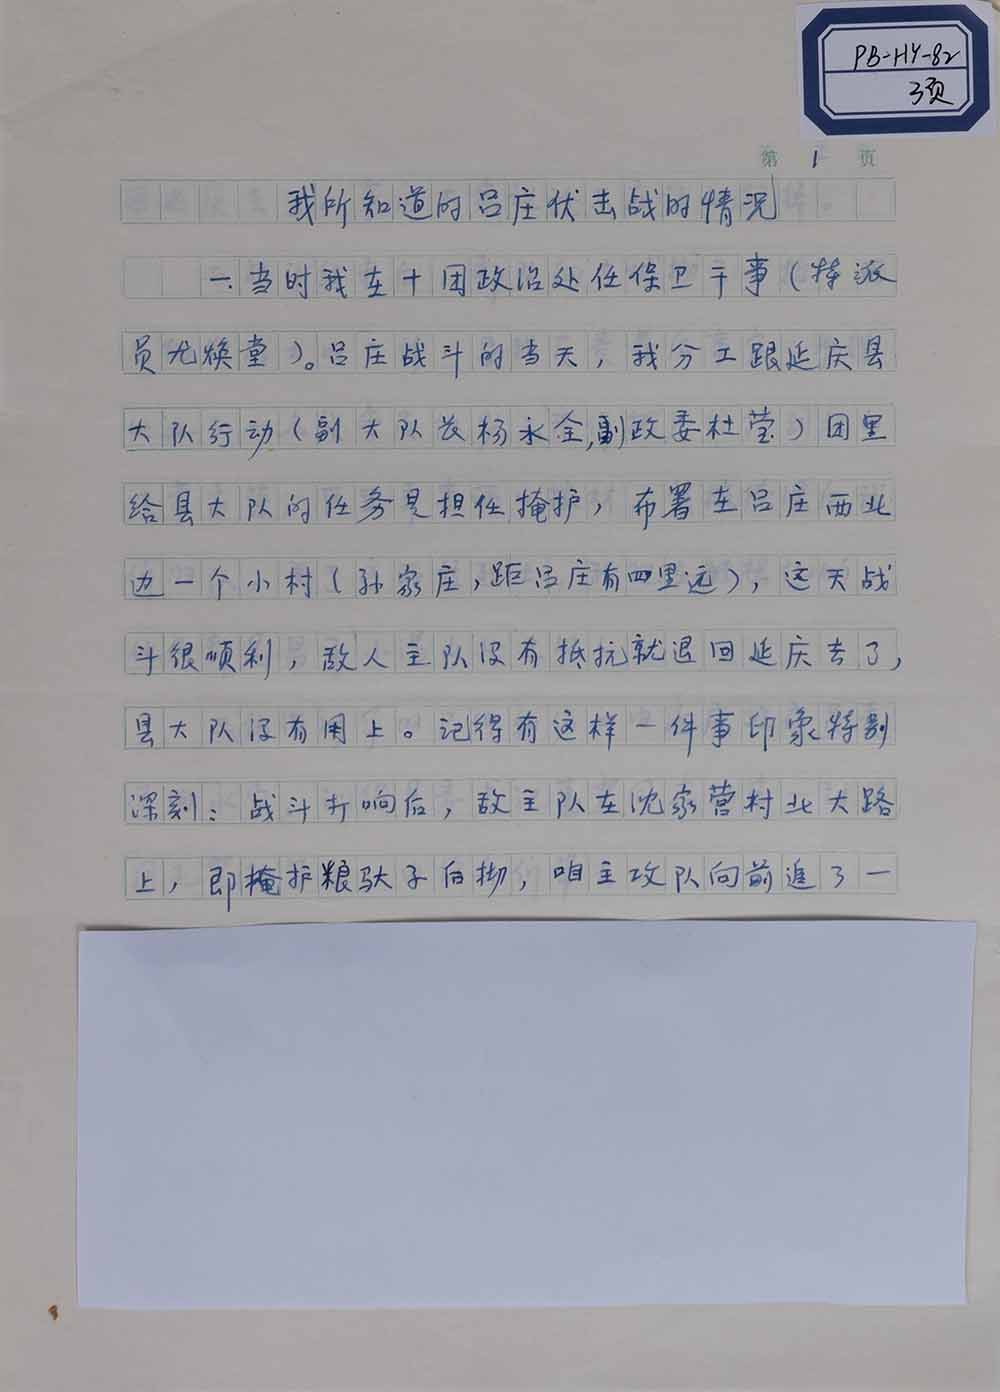 PB-HY-82
3页
第 1 页
我所知道的吕庄伏击战的情况
一、当时我在十团政治处任保卫干事(特派
员尤焕堂)。吕庄战斗的当天,我分工跟延庆县
大队行动(副大队长杨永全,副政委杜莹)团里
给县大队的任务是担任掩护,布署在吕庄西北
边一个小村(孙家庄,距吕庄有四里远),这天战
斗很顺利,敌人主队没有抵抗就退回延庆去了,
县大队没有用上。记得有这样一件事印象特别
深刻:战斗打响后,敌主队在沈家营村北大路
上,即掩护粮驮子后撤,咱主攻队向前進了一